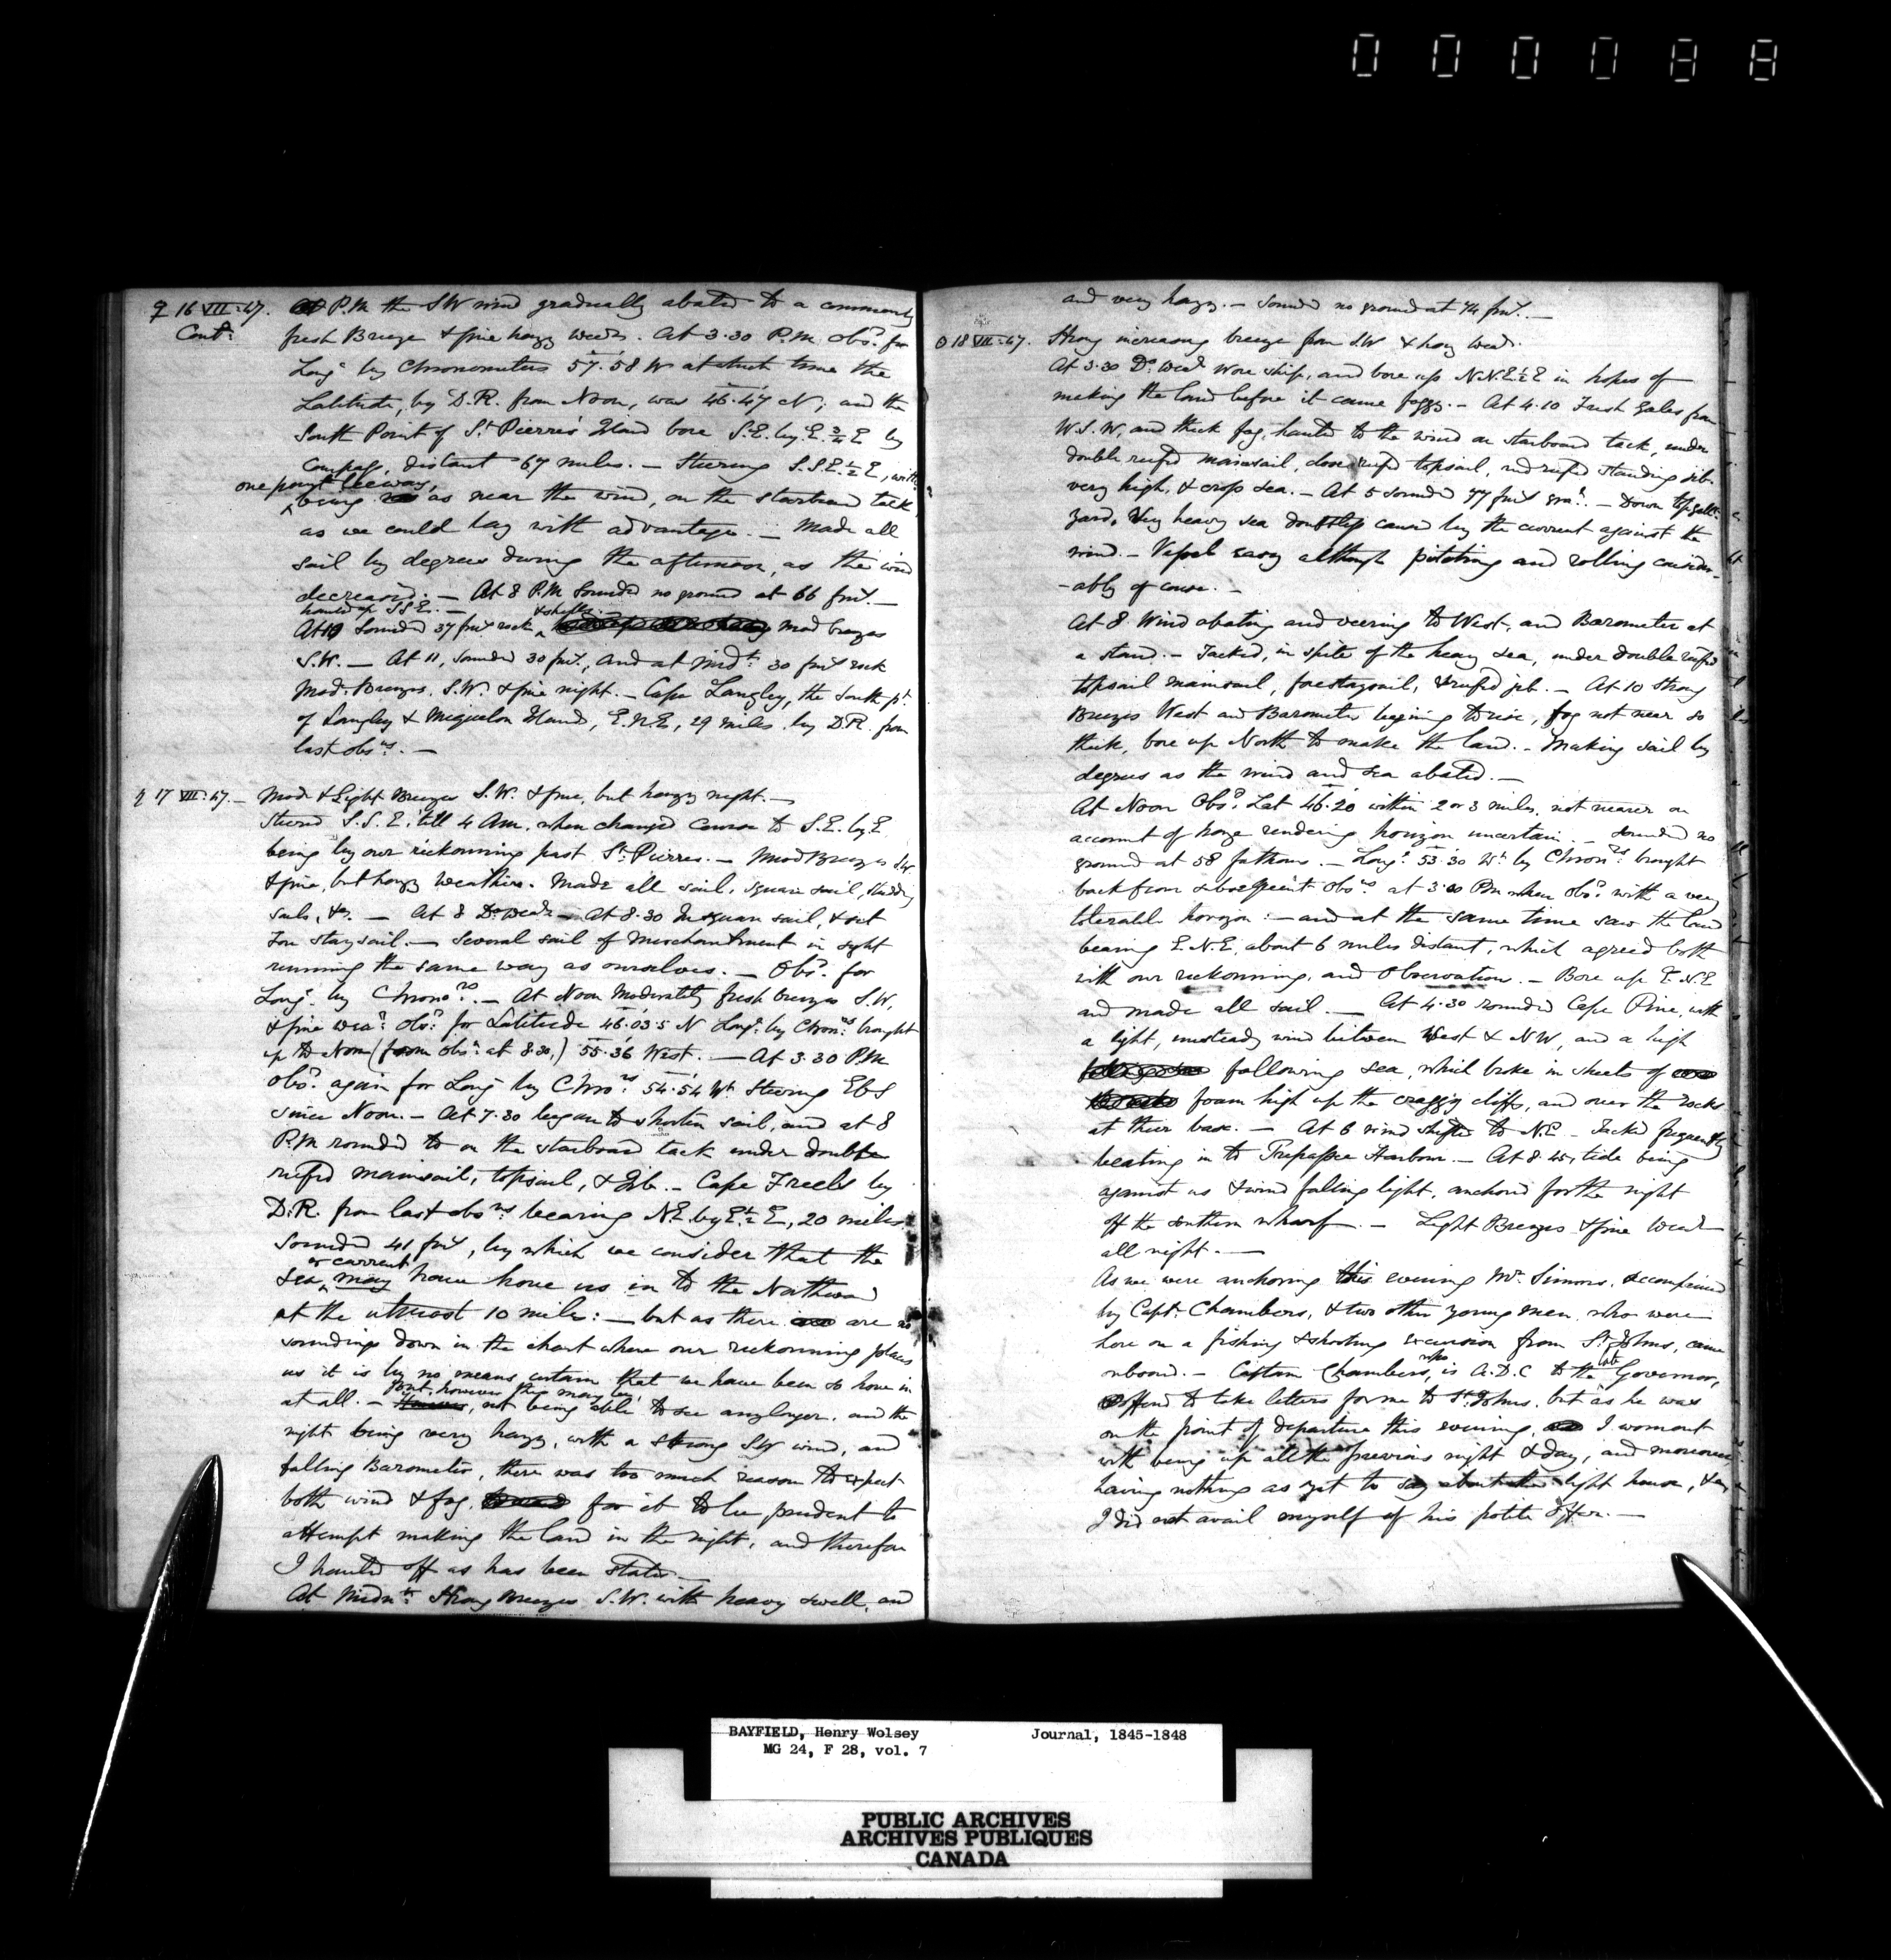 000088
♀ 16 VII:47. At P.M the SW wind gradually abated to a commonly
Contd. fresh Breeze & fine hazy Weathr. At 3.30 P.M. Obsd. for
Longe. by Chronometers 57.58 W at which time the
Latitude, by D.R. from Noon, was 46.47 N; and the
South Point of St. Pierre's Island bore S.E. by E. 3/4 E by
Compass, distant 67 miles. — Steering S.S.E 1/2 E, with
one point leeway,
being as near the wind, on the starboard tack
as we could lay with advantage. — Made all
sail by degrees during the afternoon, as the wind
decreased. — At 8 P.M Sounded no ground at 66 fms. —
hauled up S.S.E. — & shells. —
At 10 Sounded 37 fms rock Mod breezes
S.W. — At 11, Sounded 30 fms., and at Midt. 30 fms rock
Mod. Breezes. S.W. & fine night. — Cape Langley, the South pt.
of Langley & Miquelon Island, E.N.E, 29 miles by D.R. from
last obsns. —
17 VII:47. — Mod & Light Breezes S.W. & fine, but hazy night. —
Steered S.S.E. till 4 Am. when changed Course to S.E. by E
being by our reckonning past St. Pierres. — Mod Breezes SW
& fine, but hazy Weather. Made all sail, square sail, studding
sails, &c. — At 8 Do. Weathr — At 8.30 In square sail, & set
Fore stay sail. — Several sail of Merchantment in sight
running the same way as ourselves. — Obsd. for
Longe. by Chronors. — At Noon Moderately fresh breezes S.W,
& fine Wear. Obsd. for Latitude 46.03.5 N Longe. by Chronrs. brought
up to Noon (from Obsn. at 8.30,) 55.36 West. — At 3.30 P.M
Obsd. again for Longe by Chrors. 54.54 Wt. Steering EbS
since Noon. — At 7.30 began to shorten sail, and at 8
P.M rounded to on the starboard tack under double
reefed mainsail, topsail, & Jib. — Cape Freels by
D.R. from last obsns. bearing N.E. by E 1/2 E, 20 miles
Sounded 41 fms, by which we consider that the
or current
sea may have hove us in to the Northward
at the utmost 10 miles: — but as there are no
soundings down in the chart where our reckonning places
us it is by no means certain that we have been so hove in
but, however this may be,
at all. — not being able to see any longer. and the
night being very hazy, with a strong SW wind, and
falling Barometer, there was too much reason to expect
both wind & fog, for it to be prudent to
attempt making the land in the night, and therefore
I hauled off as has been stated —
At Midnt. Strong Breezes S.W. with heavy swell, and
and very hazy. — Sounded no ground at 74 fms. —
☉ 18 VII:47. Strong increasing breeze from S.W & hazy Weathr.
At 3.30 Do. Weathr Wore ship, and bore up N.N.E 1/2 E in hopes of
making the land before it came foggy. — At 4.10 Fresh Gales from
W.S.W, and thick fog, hauled to the wind on starboard tack, under
double reefed mainsail, close reefed topsail, and reefed standing jib.
very high, & cross sea. — At 5 sounded 77 fms grod. — Down topgallt.
yard. Very heavy sea doubtless caused by the current against the
wind. — Vessel easy although pitching and rolling consider-
-ably of course. —
At 8 Wind abating and veering to West, and Barometer at
a stand. — Tacked, in spite of the heavy sea, under double reefed
topsail mainsail, forestaysail, & reefed jib. — At 10 Strong
Breezes West and Barometer begining to rise, fog not near so
thick, bore up North to make the land. — Making sail by
degrees as the wind and sea abated. —
At Noon Obsd. Lat 46.20 within 2 or 3 miles, not nearer on
account of haze rendering horizon uncertain. — Sounded no
ground at 58 fathoms. — Longe. 53.30 Wt. by Chronrs. brought
back from subsequent Obsns at 3.30 Pm when Obsd. with a very
tolerable horizon: — and at the same time saw the land
bearing E.N.E. about 6 miles distant, which agreed both
with our reckonning, and Observation. — Bore up E.N.E
and made all sail. — At 4.30 rounded Cape Pine, with
a light, unsteady wind between West & NW, and a high
following sea, which broke in sheets of
foam high up the craggy cliffs, and over the rocks
at their base. — At 6 wind shifted to N.E — Tacked frequently
beating in to Trepassee Harbour. — At 8.45, tide being
against us & wind falling light, anchored for the night
off the southern wharf. — Light Breezes & fine Weathr
all night. —
As we were anchoring this evening Mr. Simms, accompanied
by Captn. Chambers, & two other young men, who were
here on a fishing & shooting excursion from St. Johns, came
onboard. — Captain Chambers, who is A.D.C to the late Governor,
offered to take letters for me to St. Johns, but as he was
on the point of departure this evening, I worn out
with being up all the previous night & day, and moreover
having nothing as yet to say about the light house, &c,
I did not avail myself of his polite offer. —
BAYFIELD, Henry Wolsey Journal, 1845-1848
MG 24, F 28, vol. 7
PUBLIC ARCHIVES
ARCHIVES PUBLIQUES
CANADA